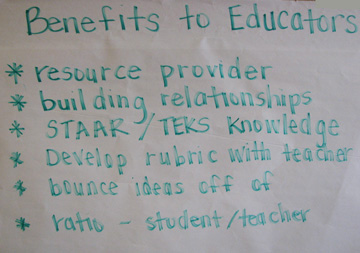 Benefits to Educators
* resource provider
* building relationships
* STAAR/TEKS Knowledge
* Develop rubric with teacher
* bounce ideas off of
* ratio - student/teacher